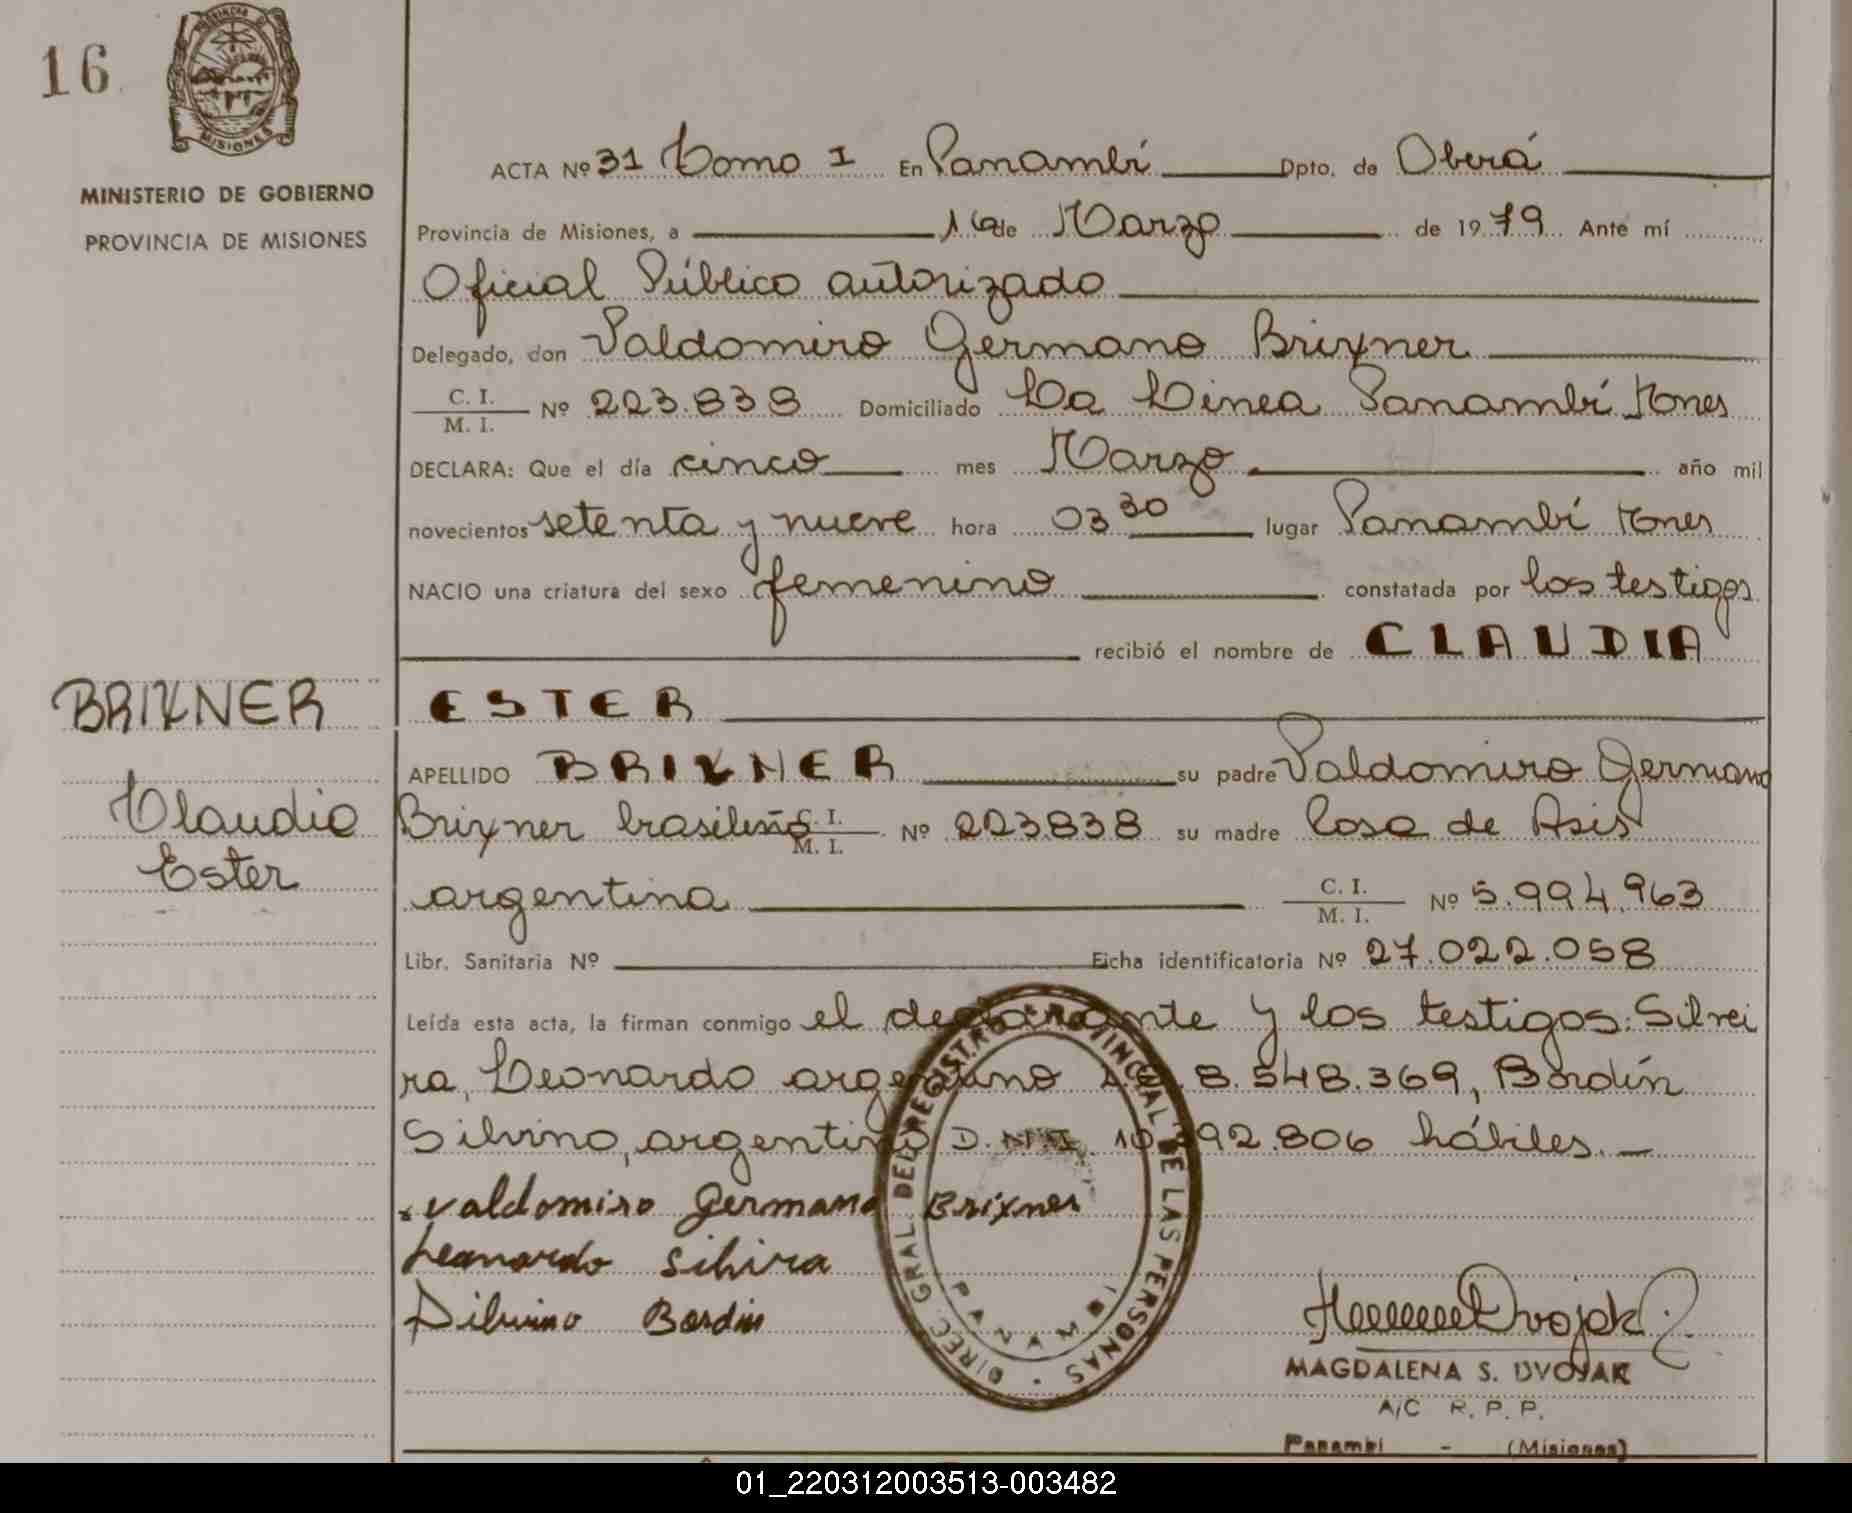 16
PROVINCIA DE
MISIONES
MINISTERIO DE GOBIERNO
PROVINCIA DE MISIONES
ACTA Nº 31 Tomo I En Panambí Dpto. de Oberá
Provincia de Misiones, a 16 de Marzo de 1979 Ante mí
Oficial Público autorizado
Delegado, don Valdomiro Germano Brixner
C. I.
M. I. Nº 223.838 Domiciliado La Linea Panambí Mones
DECLARA: Que el día cinco mes Marzo año mil
novecientos setenta y nueve hora 03 30 lugar Panambí Mones
NACIO una criatura del sexo femenino constatada por los testigos
recibió el nombre de CLAUDIA
ESTER
BRIXNER
Claudia
Ester
APELLIDO BRIXNER su padre Valdomiro Germano
Brixner brasileño C. I. M. I. Nº 223838 su madre Rosa de Asis
argentina C. I. M. I. Nº 5.994.963
Libr. Sanitaria Nº Ficha identificatoria Nº 27.022.058
Leída esta acta, la firman conmigo el declarante y los testigos: Silvei
ra, Leonardo argentino 8.548.369, Bordín
Silvino, argentino D.N.I. 10 92.806 hábiles.—
Valdomiro Germano Brixner
Leonardo Silvira
Silvino Bordin
DIREC. GRAL DEL REGISTRO PROVINCIAL DE LAS PERSONAS
PANAMBI
Dvojak
MAGDALENA S. DVOJAK
A/C R. P. P.
Panambí - (Misiones)
01_220312003513-003482